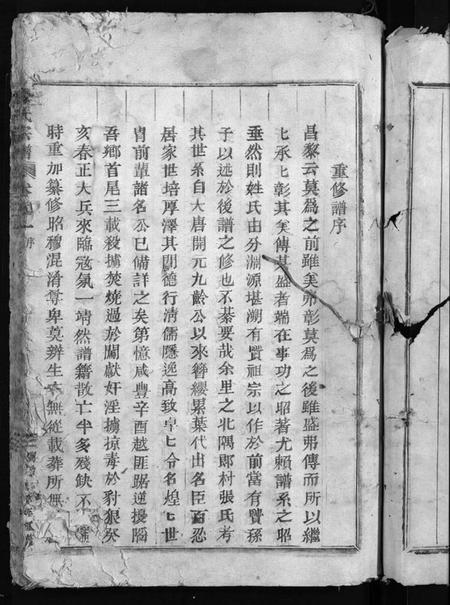 重修譜序
昌黎云莫為之前雖美弗彰莫為之後雖盛弗傳而所以繼
七承七彰其美傳其盛者端在事功之昭著尤賴譜系之昭
垂然則姓氏由分淵源堪溯有賢祖宗以作於前當有賢孫
子以述於後譜之修也不綦要哉余里之北隅郎村張氏考
其世系自大唐開元九齡公以來簪纓累葉代出名臣百忍
居家世培厚澤其間德行清儒隱逸高致卓七令名煌七世
胄前輩諸名公已備詳之矣第憶咸豐辛酉越匪踞逆擾
吾鄉首尾三載殺擄焚燒過於闖獻奸淫擄掠毒於豺狼癸
亥春正大兵來臨寇氛一靖然譜籍散亡半多殘缺不
時重加纂修昭穆混淆尊卑莫辨生卒無從載葬所無
氏宗譜
序